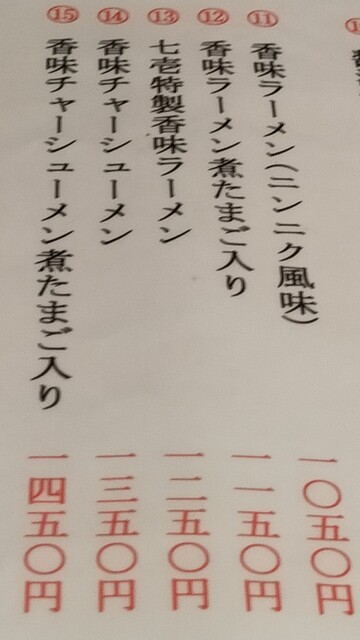 ⑪ 香味ラーメン(ニンニク風味) 一〇五〇円
⑫ 香味ラーメン煮たまご入り 一一五〇円
⑬ 七壱特製香味ラーメン 一二五〇円
⑭ 香味チャーシューメン 一三五〇円
⑮ 香味チャーシューメン煮たまご入り 一四五〇円